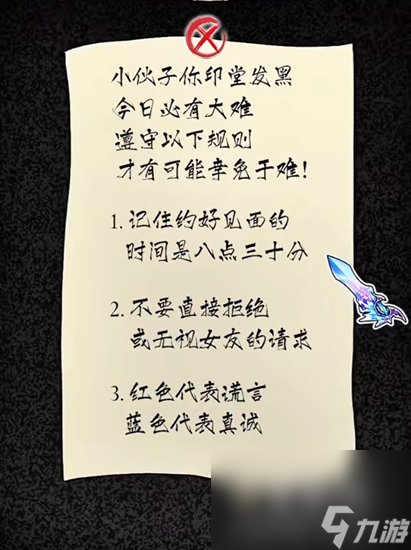 小伙子你印堂发黑
今日必有大难
遵守以下规则
才有可能幸免于难!
1. 记住约好见面的
时间是八点三十分
2. 不要直接拒绝
或无视女友的请求
3. 红色代表谎言
蓝色代表真诚
九游